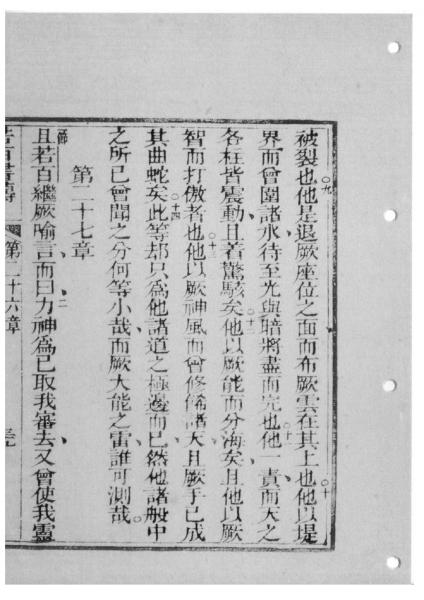 被裂也他○九是退厥座位之面而布厥雲在其上也○十他以堤
界而曾圍諸水待至光與暗將盡而完也○十一他一責而天之
各柱皆震動且着驚駭矣○十二他以厥能而分海矣且他以厥
智而打傲者也○十三他以厥神風而曾修俻諸天且厥手已成
其曲蛇矣○十四此等却只為他諸道之極邊而已然他諸般中
之所已曾聞之分何等小哉而厥大能之雷誰可測哉
第二十七章
且若百繼厥喻言而曰二力神為已取我審去又曾使我靈
若百書傳 第二十六章